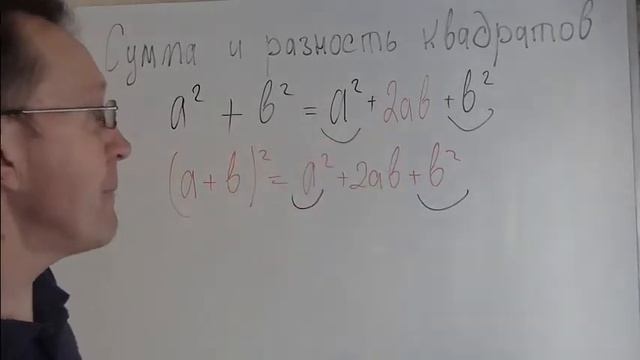 Сумма и разность квадратов
a² + b² = a² + 2ab + b²
(a + b)² = a² + 2ab + b²